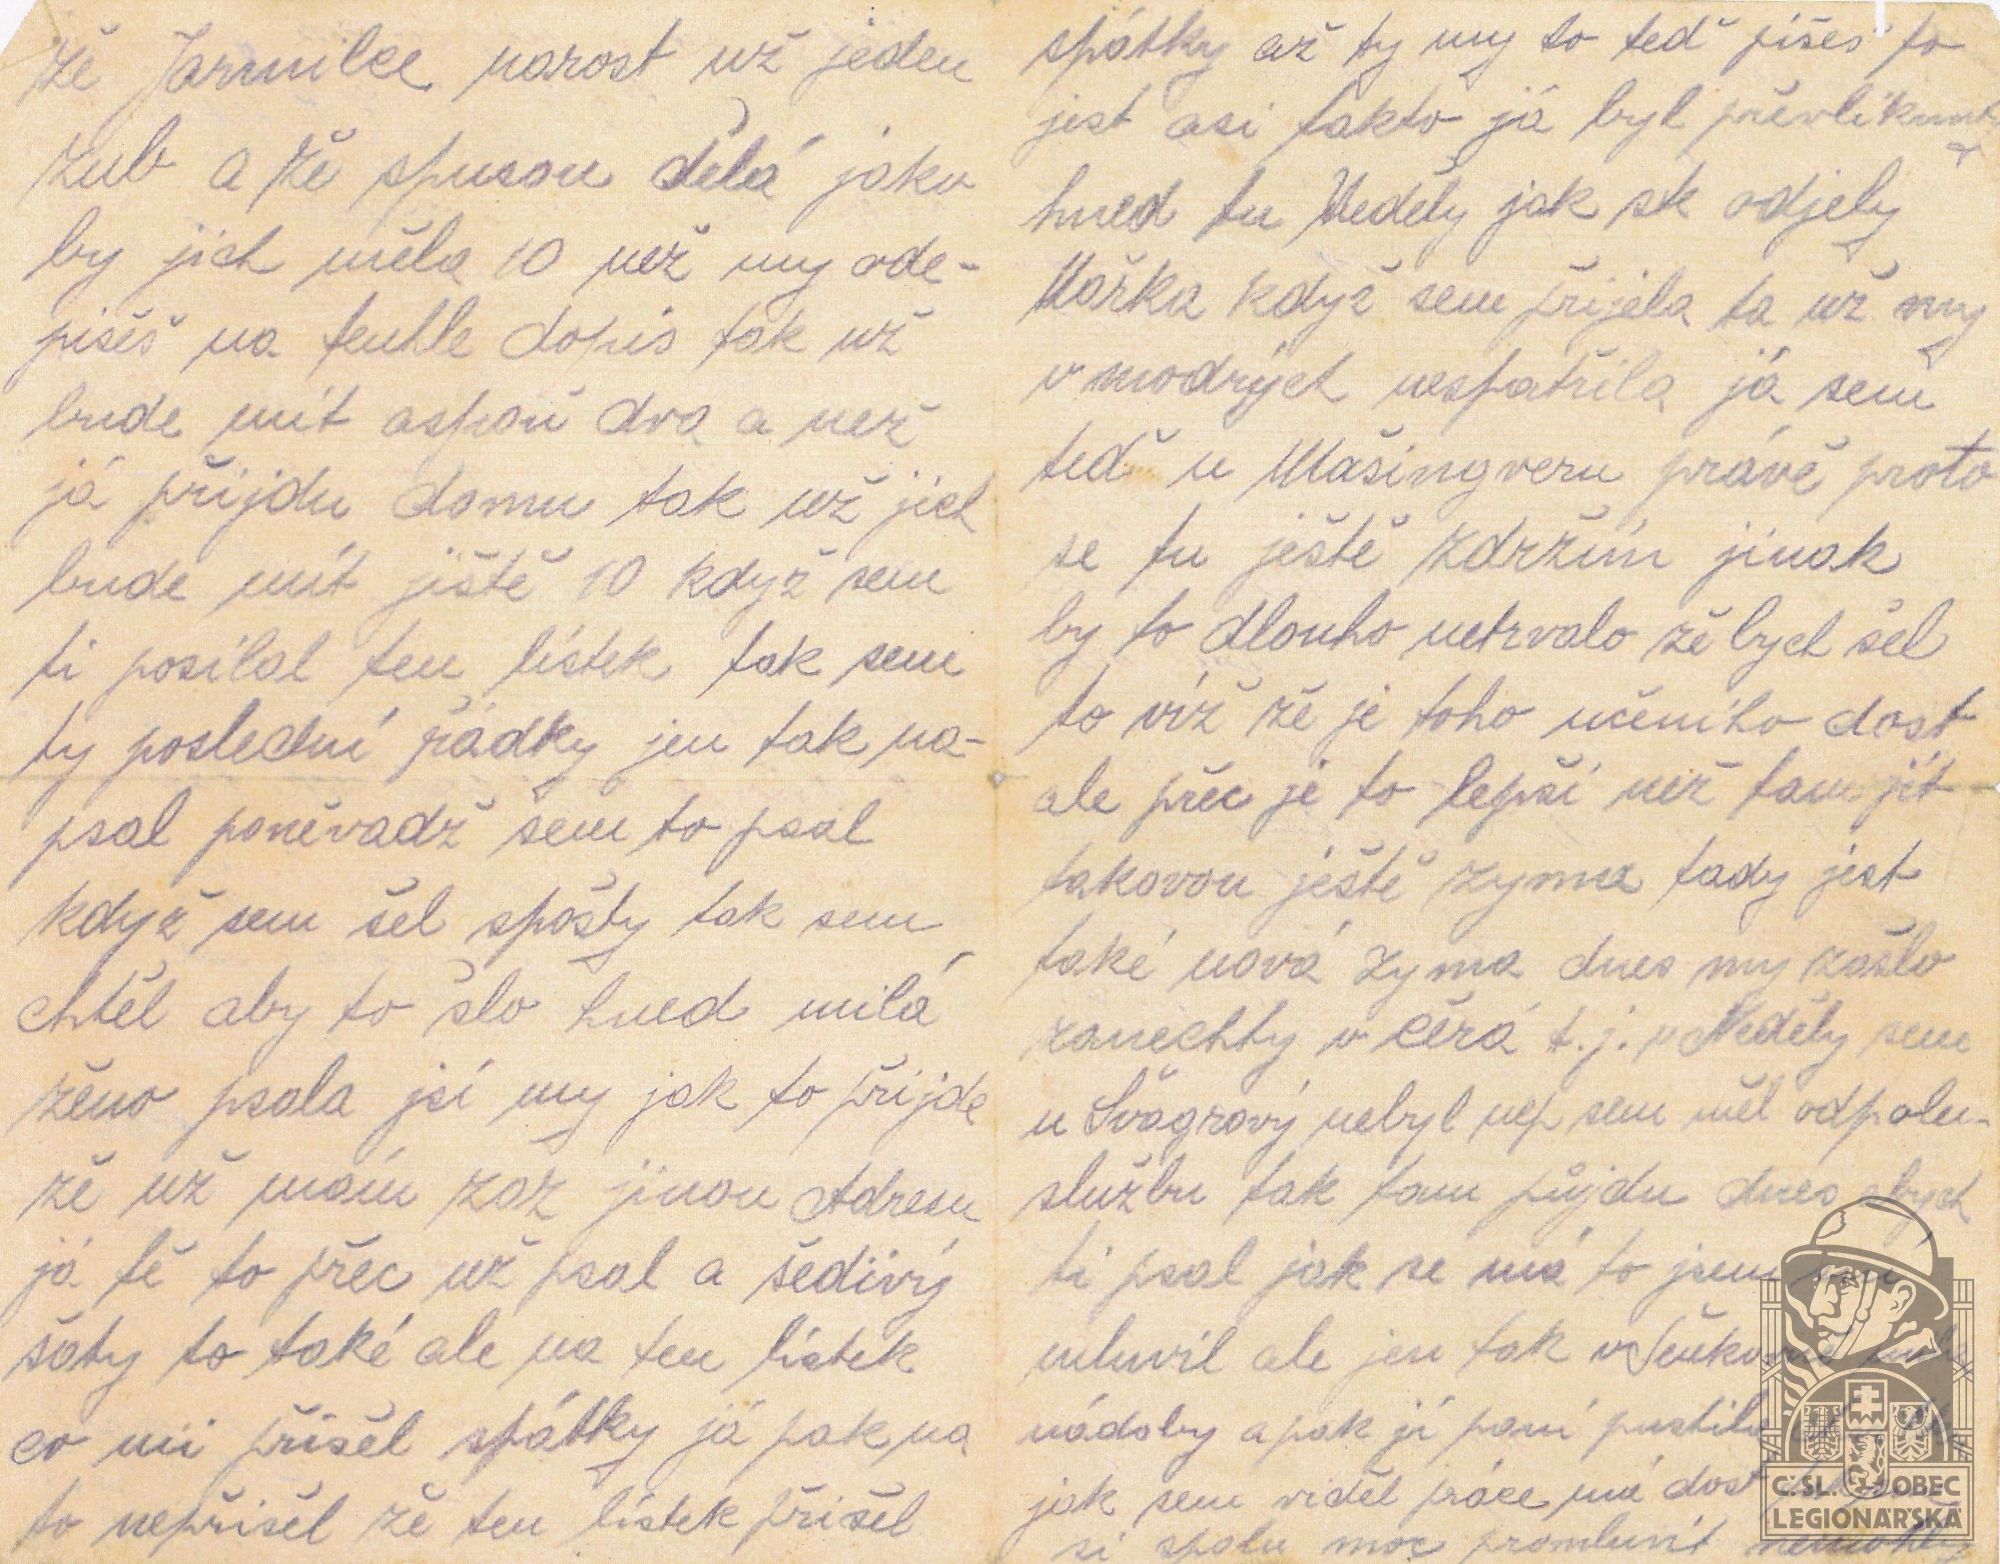 že Jarmilce narost už jeden
zub a že spusou dělá jako
by jich měla 10 než my ode-
pišeš na tenhle dopis tak už
bude mít aspoň dva a než
já přijdu domu tak už jich
bude mít jiště 10 když sem
ti posílal ten lístek tak sem
ty poslední řádky jen tak na-
psal poněvadž sem to psal
když sem šel spošty tak sem
chtěl aby to šlo hned milá
ženo psala jsi my jak to přijde
že už mám zaz jinou Adresu
já tě to přec už psal a šedivý
šaty to také ale na ten lístek
co mi přišel spátky já pak na
to nepřišel že ten lístek přišel
spátky až ty my to teď pišeš to
jest asi takto já byl převlíknut
hned tu Neděly jak sk odjely
Mařka když sem přijela ta už my
v modrých nespatřila já sem
teď u Mašingveru právě proto
se tu ještě zdržím jinak
by to dlouho netrvalo že bych šel
to víž že je toho učeního dost
ale přec je to lepší než tam jít
takovou ještě zyma tady jest
také nová zyma dnes my zašlo
zanechty v čera t.j. v Neděly sem
u Švagrový nebyl nep sem měl odpolu-
službu tak tam půjdu dnes abych
ti psal jak se má to jsem
mluvil ale jen tak
nádoby a pak jí paní pustila
jak sem viděl práce má dost
si spolu moc promluvit nemohly
Č.SL. OBEC
LEGIONÁŘSKÁ